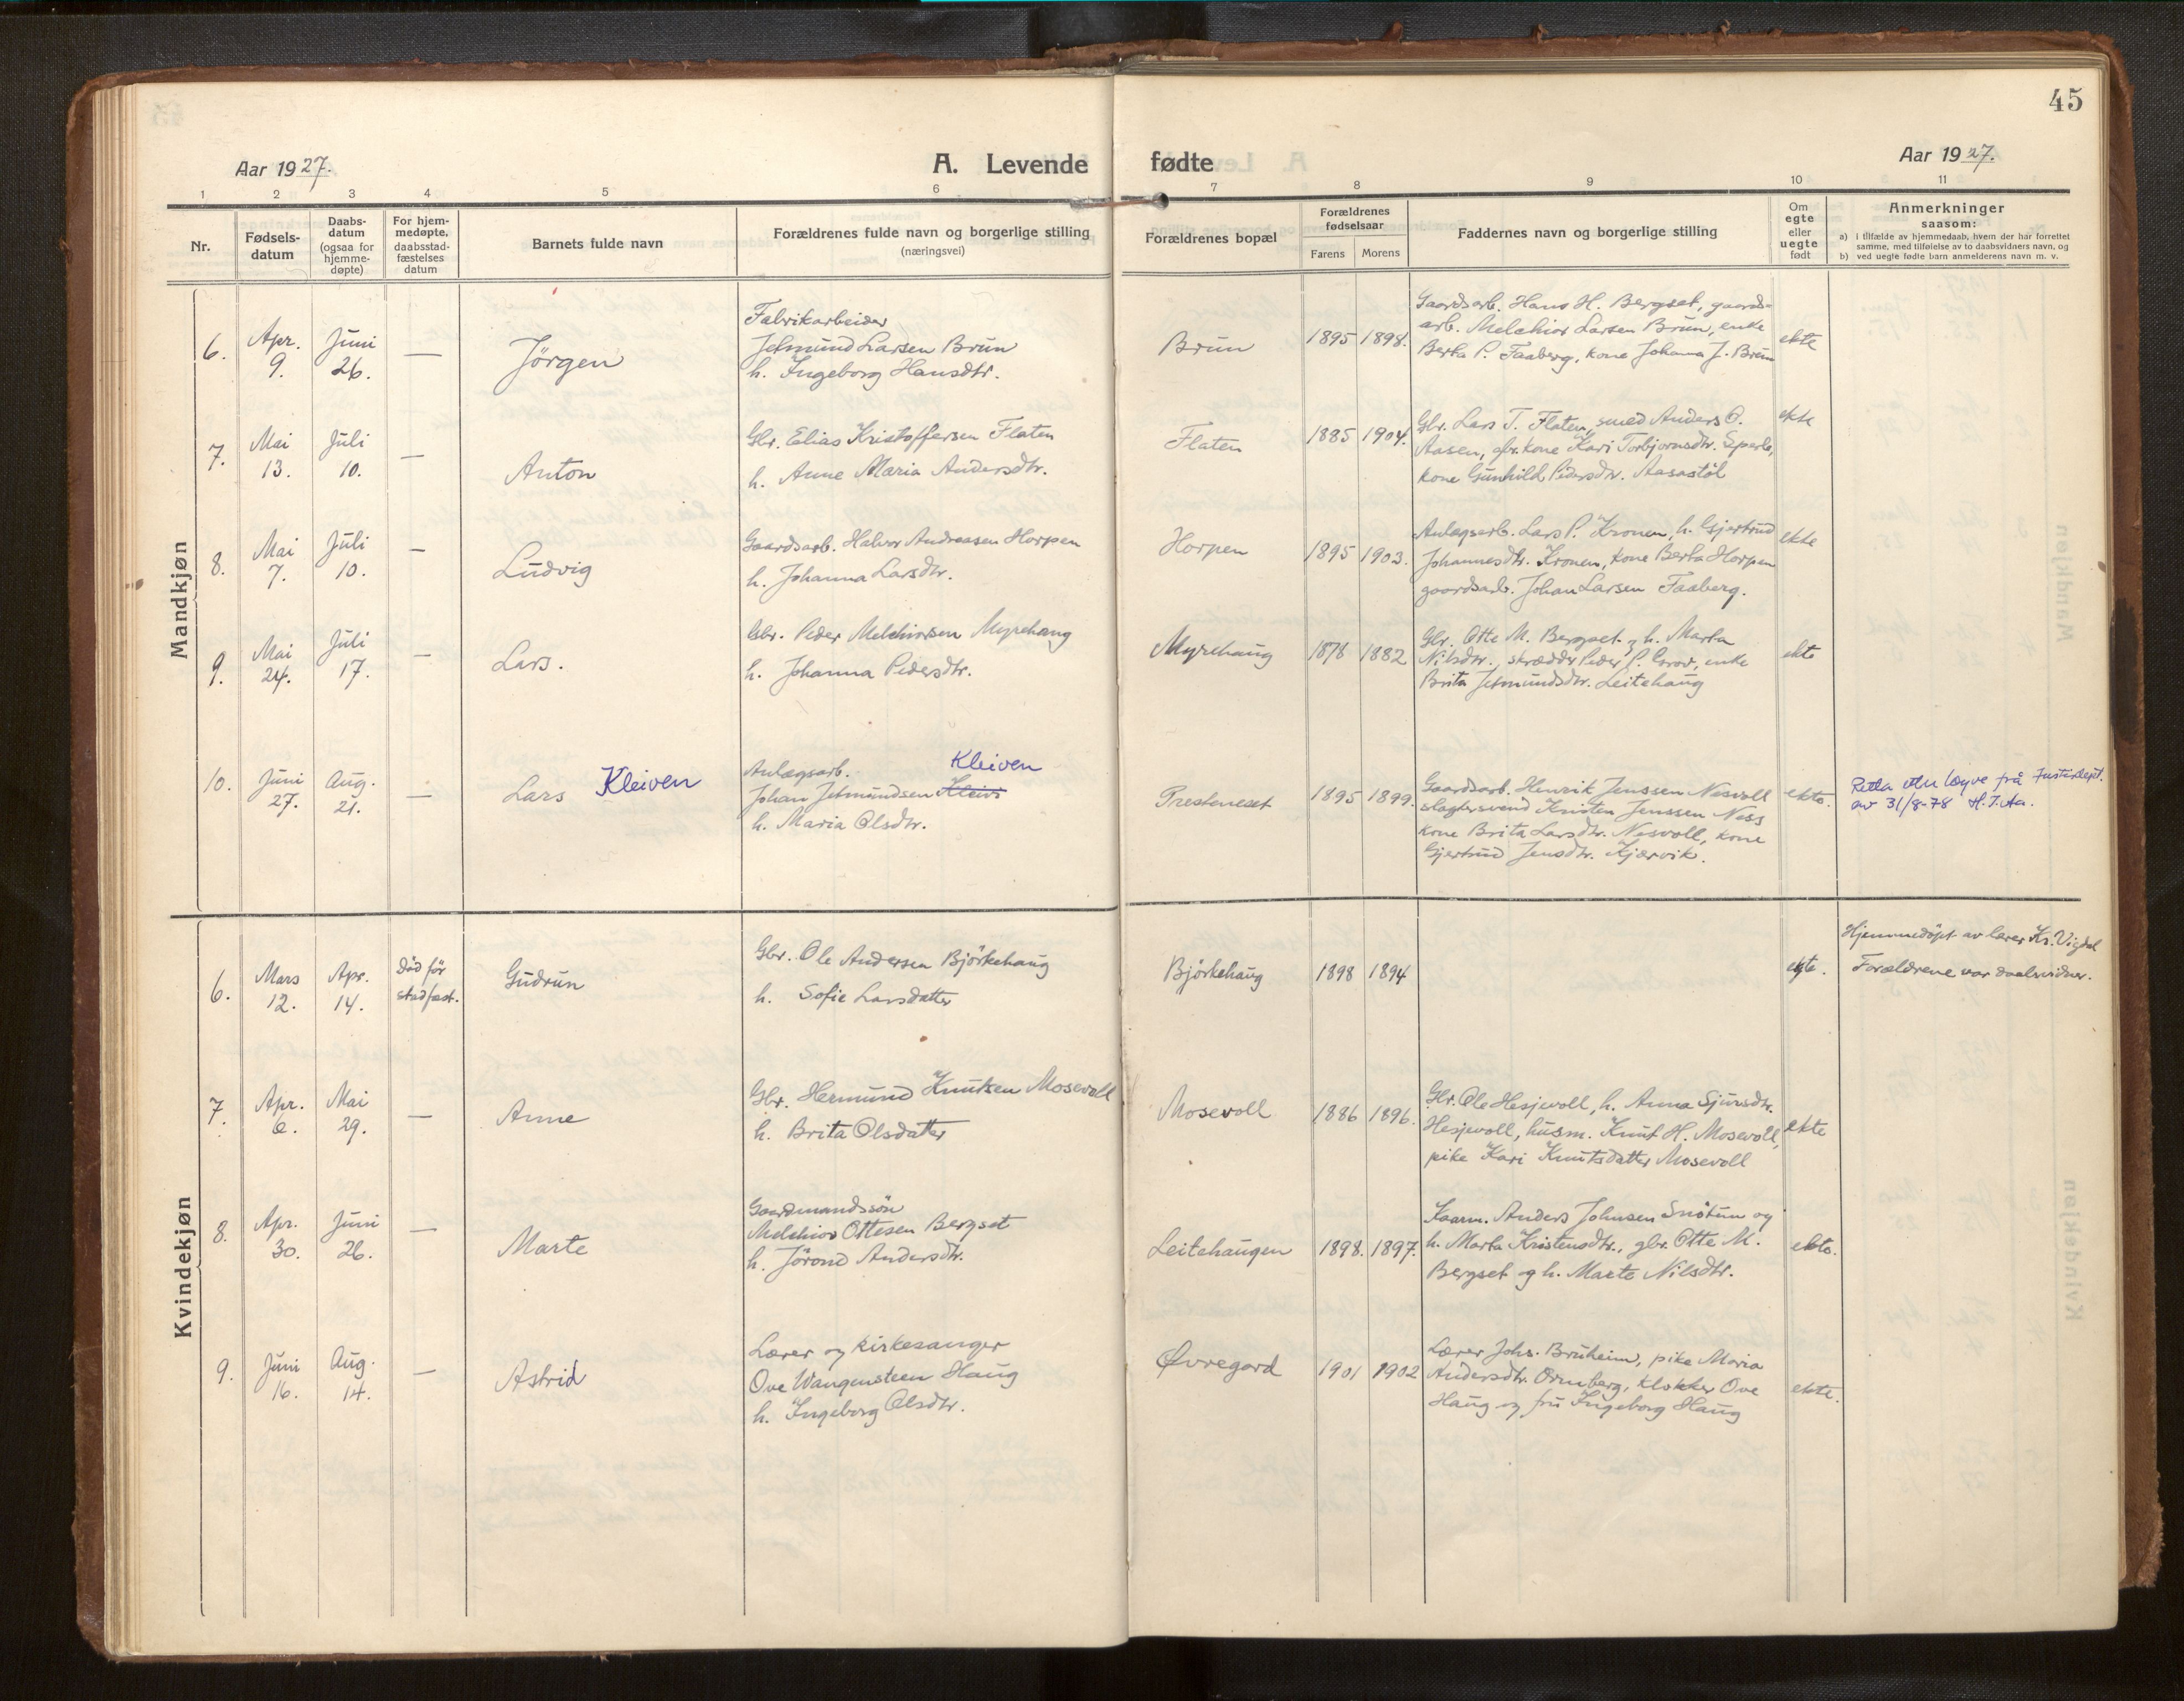 45
Aar 1927.
A. Levende
fødte
Aar 1927.
1 2 3 4 5 6 7 8 9 10 11
Nr.
Fødsels-
datum
Daabs-
datum
(ogsaa for
hjemme-
døpte)
For hjem-
medøpte,
daabsstad-
fæstelses
datum
Barnets fulde navn
Forældrenes fulde navn og borgerlige stilling
(næringsvei)
Forældrenes bopæl
Forældrenes
fødselsaar
Farens
Morens
Faddernes navn og borgerlige stilling
Om
egte
eller
uegte
født
Anmerkninger
saasom:
a) i tilfælde av hjemmedaab, hvem der har forrettet
samme, med tilføielse av to daabsvidners navn, og
b) ved uegte fødte barn anmelderens navn m. v.
Mandkjøn
6.
Apr.
9.
Juni
26.
—
Jörgen
Fabrikarbeider
Jetmund Larsen Brun
h. Ingeborg Hansdtr.
Brun
1895
1898.
Gaardsarb. Hans H. Bergset, gaards-
arb. Melchior Larsen Brun, enke
Berta P. Faaberg, kone Johanna J. Brun
ekte
7.
Mai
13.
Juli
10.
—
Anton
Gbr. Elias Kristoffersen Flaten
h. Anne Maria Andersdtr.
Flaten
1885
1904.
Gbr. Lars T. Flaten, smed Anders O.
Aasen, gbr.kone Kari Torbjornsdtr. Eperle,
kone Gunhild Pedersdtr. Aasastöl
ekte
8.
Mai
7.
Juli
10.
—
Ludvig
Gaardsarb. Halvor Andreasen Horpen
h. Johanna Larsdtr.
Horpen
1895
1903.
Anlagsarb. Lars P. Kronen, h. Gjertrud
Johannesdtr. Kronen, kone Berta Horpen
gaardsarb. Johan Larsen Faaberg.
ekte
9.
Mai
24.
Juli
17.
—
Lars.
Gbr. Peder Melchiorsen Myrehaug
h. Johanna Pedersdtr.
Myrehaug
1878
1882
Gbr. Otte M. Bergset og h. Marta
Nilsdtr., skrædder Peder P. Grov, enke
Brita Jetmundsdtr. Leitehaug
ekte
10.
Juni
27.
Aug.
21.
—
Lars Kleiven
Anlægsarb. Kleiven
Johan Jetmundsen Kleivi
h. Maria Olsdtr.
Presteneset
1895
1899.
Gaardsarb. Henrik Jenssen Nesvoll
slagtersvend Kristen Jenssen Ness
kone Brita Larsdtr. Nesvoll, kone
Gjertrud Jensdtr. Kjærvik.
ekte.
Retta etter løyve frå Justisdept.
av 31/8-78 H.J.Aa.
Kvindekjøn
6.
Mars
12.
Apr.
14.
död för
stadfæst.
Gudrun
Gbr. Ole Andersen Björkehaug
h. Sofie Larsdatter
Björkehaug
1898
1894
egte.
Hjemmedöpt av lærer Kr. Vigdal
Forældrene var daabsvidner.
7.
Apr.
6.
Mai
29.
—
Anne
Gbr. Hermund Knutsen Mosevoll
h. Brita Olsdatter
Mosevoll
1886
1896.
Gbr. Ole Hesjevoll, h. Anna Sjursdtr.
Hesjevoll, husm. Knut H. Mosevoll,
pike Kari Knutsdatter Mosevoll
ekte
8.
Apr.
30.
Juni
26.
—
Marte
Gaardmandssön
Melchior Ottesen Bergset
h. Jörond Andersdtr.
Leitehaugen
1898.
1897.
Kaarm. Anders Johnsen Snötun og
h. Marta Kristensdtr., gbr. Otte M.
Bergset og h. Marte Nilsdtr.
ekte.
9.
Juni
16.
Aug.
14.
—
Astrid
Lærer og kirkesanger
Ove Wangensteen Haug
h. Ingeborg Olsdtr.
Øvregard
1901
1902
Lærer Johs. Bruheim, pike Maria
Andersdtr. Ormberg, klokker Ove
Haug og fru Ingeborg Haug
ekte.